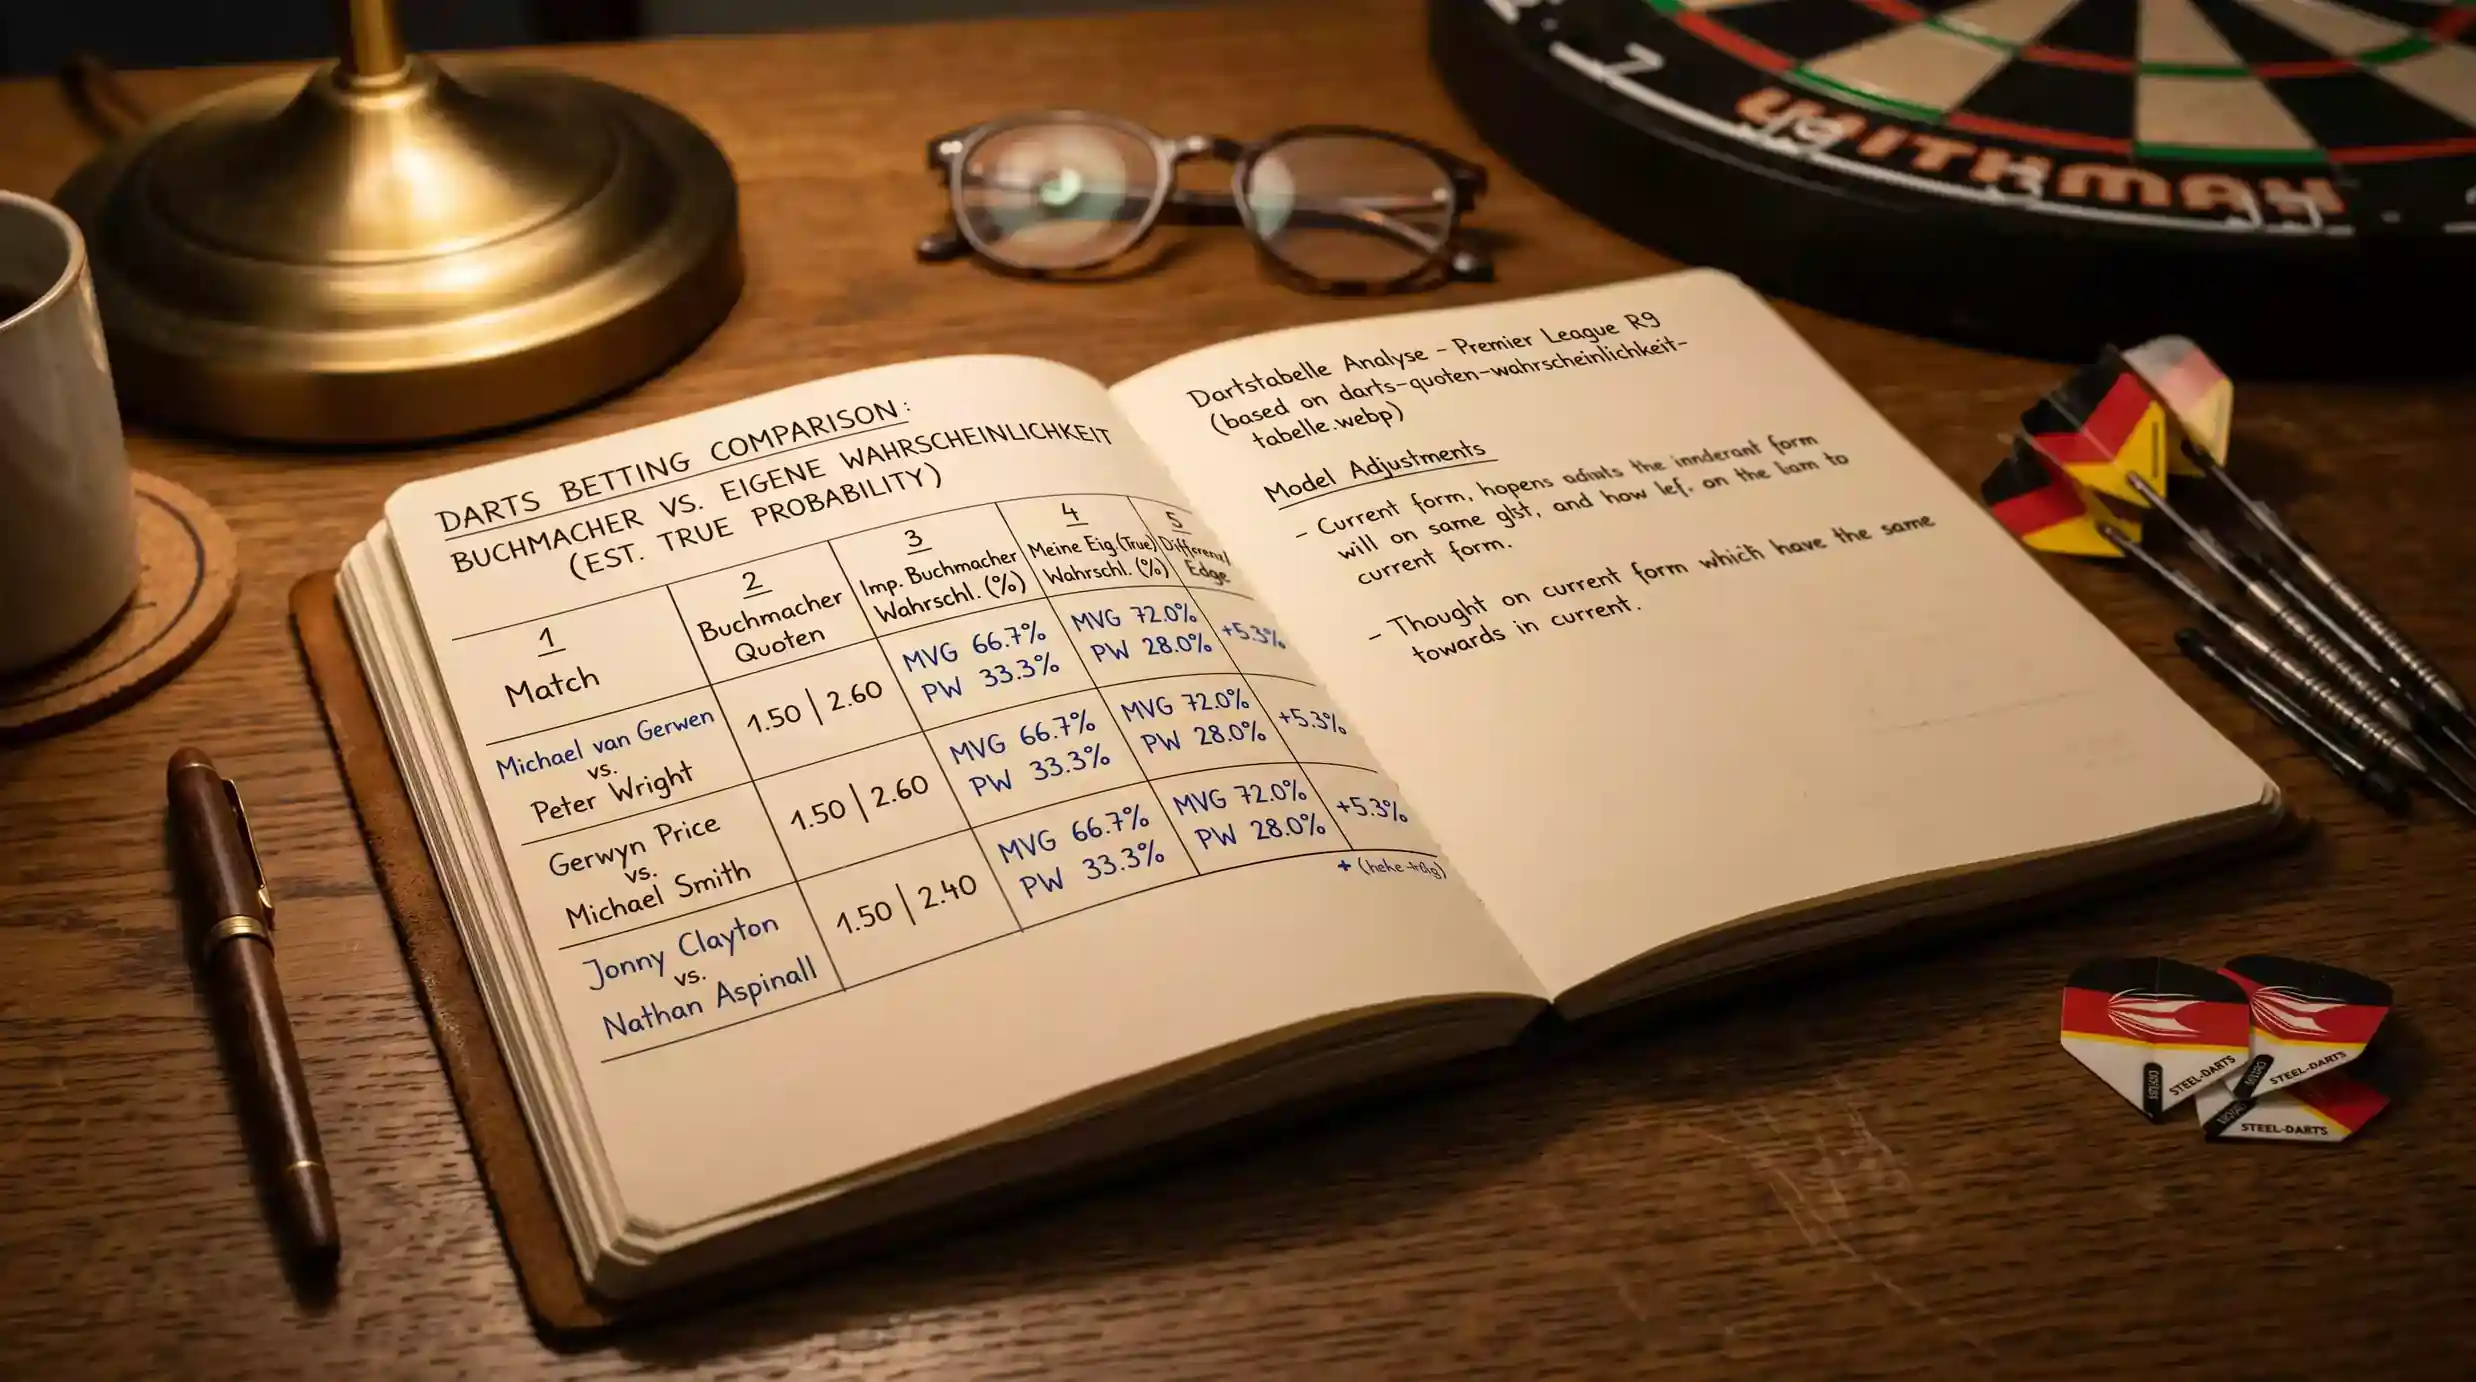 DARTS BETTING COMPARISON:
BUCHMACHER VS. EIGENE WAHRSCHEINLICHKEIT
(EST. TRUE PROBABILITY)
1
Match
2
Buchmacher
Quoten
3
Imp. Buchmacher
Wahrschl. (%)
4
Meine Eig. (True)
Wahrschl. (%)
5
Edge
Michael van Gerwen
vs.
Peter Wright
1.50 | 2.60
MVG 66.7%
PW 33.3%
MVG 72.0%
PW 28.0%
+5.3%
Gerwyn Price
vs.
Michael Smith
1.50 | 2.60
MVG 66.7%
PW 33.3%
MVG 72.0%
PW 28.0%
+5.3%
Jonny Clayton
vs.
Nathan Aspinall
1.50 | 2.40
MVG 66.7%
PW 33.3%
MVG 72.0%
PW 28.0%
+5.3%
Dartstabelle Analyse – Premier League R9
(based on darts-quoten-wahrscheinlichkeit-
tabelle.webp)
Model Adjustments
– Current form, hopens the form
will on same and how on the to
current form.
– Thought on current form which have the same
towards in current.
STEEL-DARTS
STEEL-DARTS
STEEL-DARTS